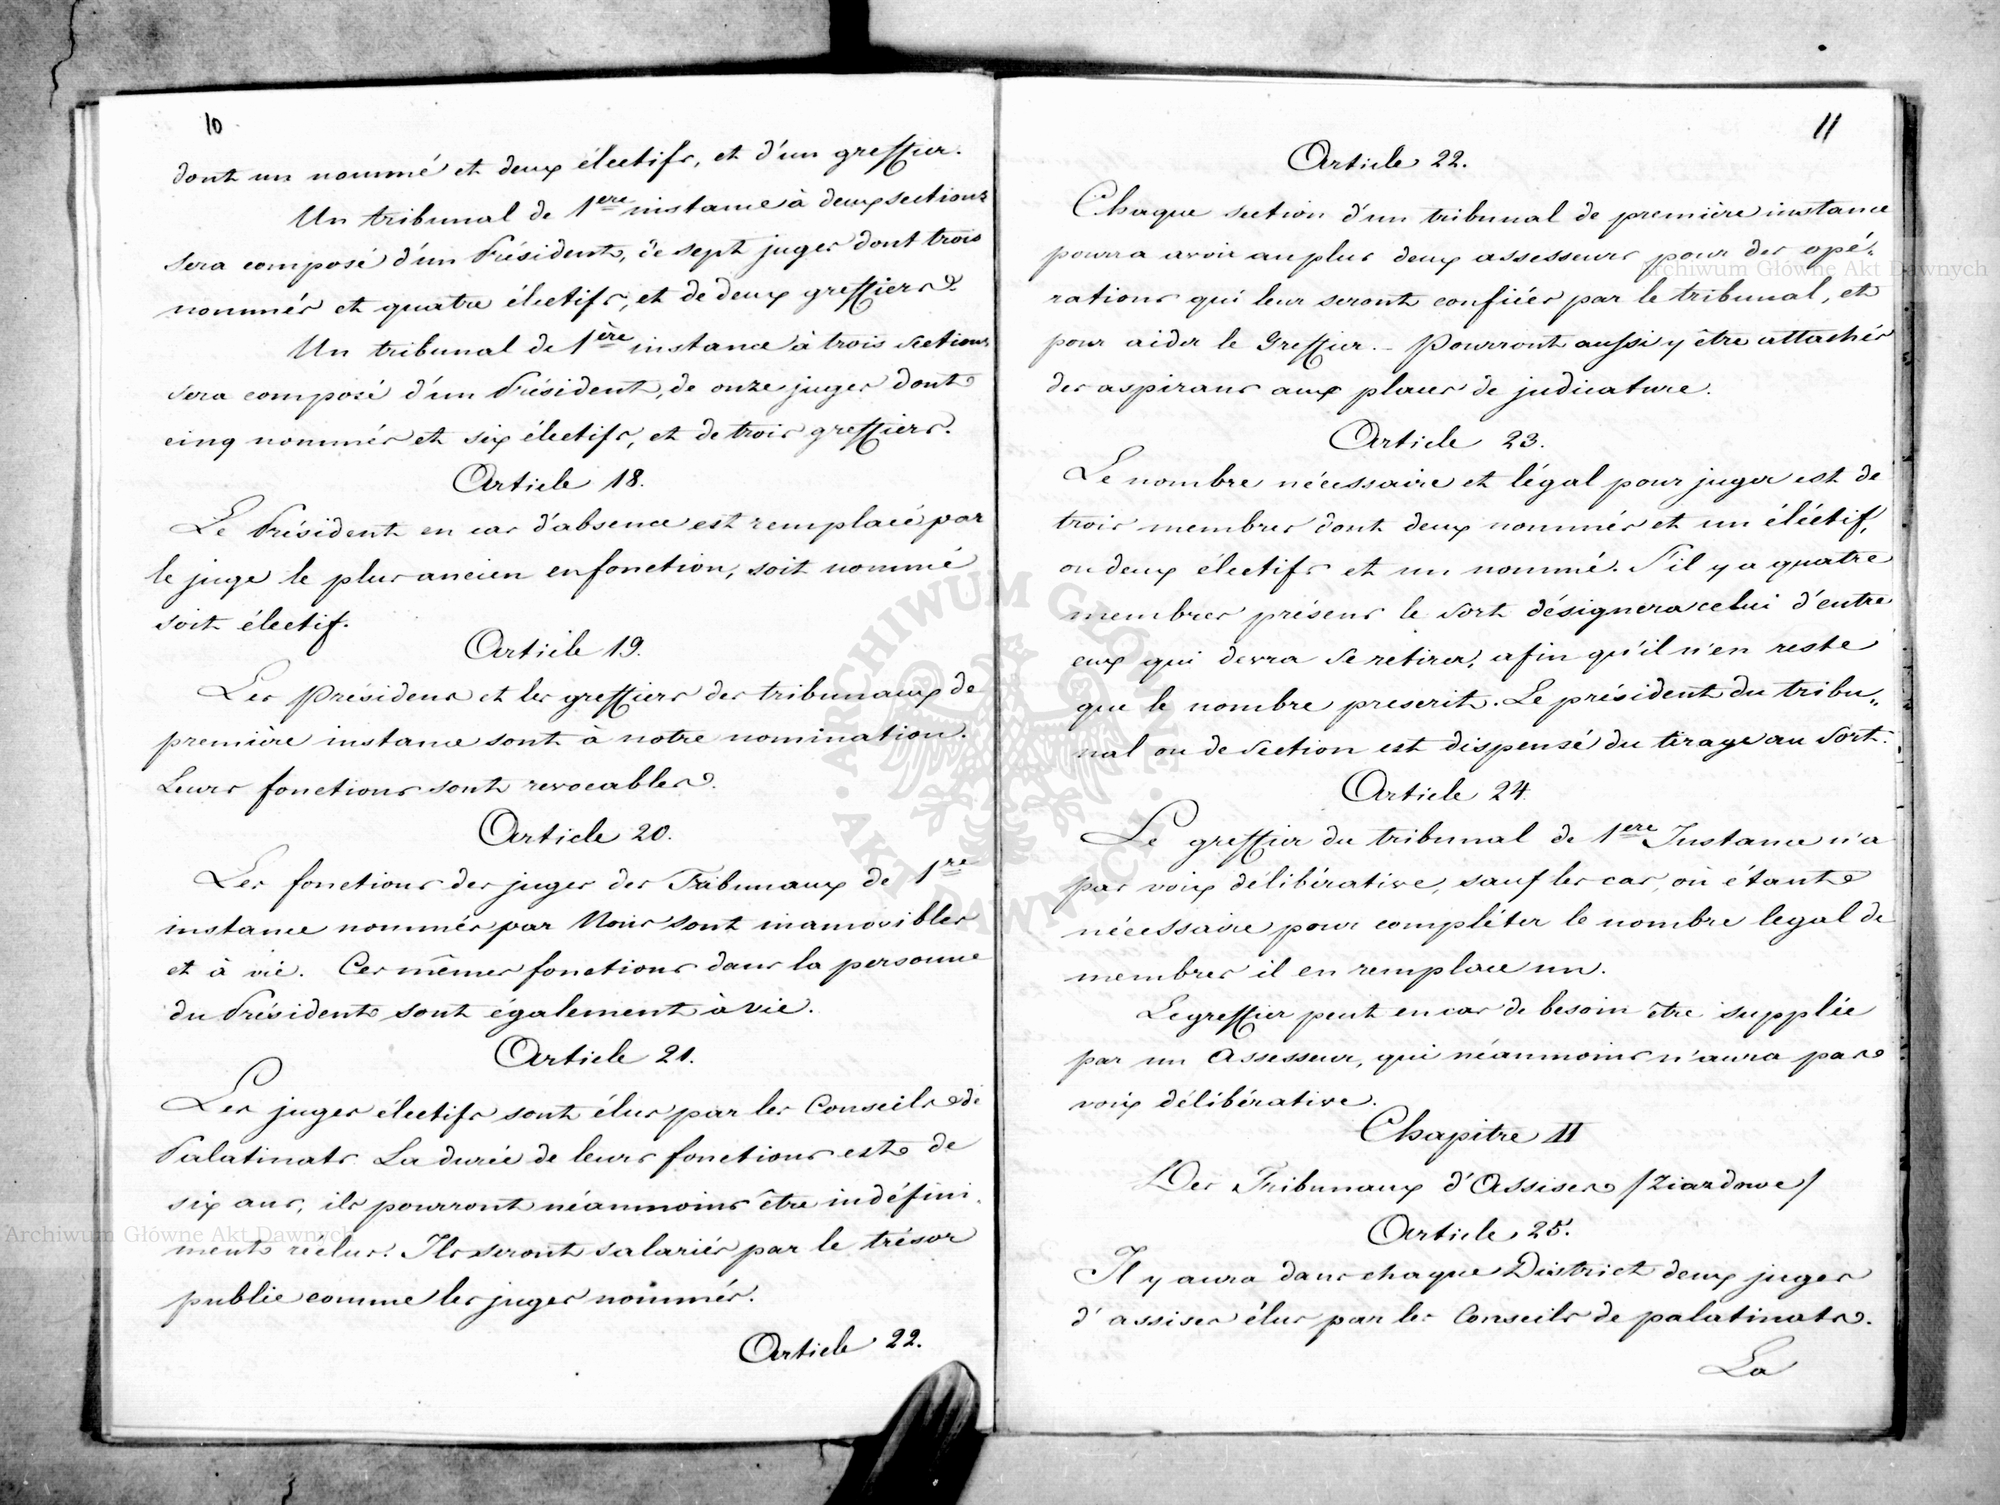 10
dont un nommé et deux électifs, et d'un greffier.
Un tribunal de 1ere instance à deux sections
sera composé d'un Président, de sept juges dont trois
nommés et quatre électifs, et de deux greffiers.
Un tribunal de 1ère instance à trois sections
sera composé d'un Président, de onze juges dont
cinq nommés et six électifs, et de trois greffiers.
Article 18.
Le Président en cas d'absence est remplacé par
le juge le plus ancien en fonction, soit nommé
soit électif.
Article 19.
Les Présidens et les greffiers des tribunaux de
première instance sont à notre nomination.
Leurs fonctions sont revocables.
Article 20.
Les fonctions des juges des Tribunaux de 1re
instance nommés par Nous sont inamovibles
et à vie. Ces mêmes fonctions dans la personne
du Président sont également à vie.
Article 21.
Les juges électifs sont élus par les Conseils de
Palatinats. La durée de leurs fonctions est de
six ans, ils pourront néanmoins être indéfini-
ment réélus. Ils seront salariés par le trésor
public comme les juges nommés.
Article 22.
11
Article 22.
Chaque section d'un tribunal de première instance
pourra avoir au plus deux assesseurs pour des opé-
rations qui leur seront confiées par le tribunal, et
pour aider le Greffier. - Pourront aussi y être attachés
des aspirans aux places de judicature.
Article 23.
Le nombre nécessaire et légal pour juger est de
trois membres dont deux nommés et un éléctif,
ou deux électifs et un nommé. S'il y a quatre
membres présens le sort désignera celui d'entre
eux qui devra se retirer, afin qu'il n'en reste
que le nombre prescrit. Le président du tribu„
nal ou de section est dispensé du tirage au sort.
Article 24.
Le greffier du tribunal de 1ere Instance n'a
pas voix délibérative, sauf les cas, où étant
nécessaire pour compléter le nombre legal de
membres il en remplace un.
Le greffier peut en cas de besoin être supplée
par un Assesseur, qui néanmoins n'aura pas
voix délibérative.
Chapitre II
Des Tribunaux d'Assises /Ziazdowe/
Article 25.
Il y aura dans chaque District deux juges
d'assises élus par les Conseils de palatinats.
La
Archiwum Główne Akt Dawnych
Archiwum Główne Akt Dawnych
ARCHIWUM GŁÓWNE AKT DAWNYCH